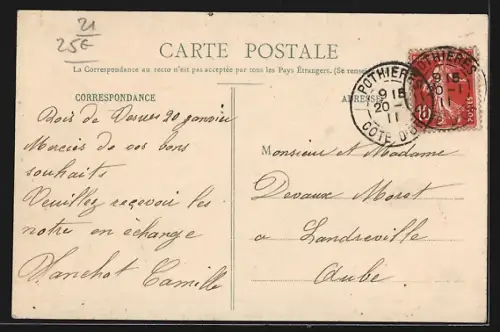 21
25€
CARTE POSTALE
La Correspondance au recto n'est pas acceptée par tous les Pays Étrangers. (Se rense
CORRESPONDANCE
ADRESSE
Bois de Vesvres 20 janvier
Mercies de vos bons
souhaits
Veuillez reçevoir les
notre en échange
Planchot Camille
POTHIERES
9 15
20 -1
11
COTE D'OR
POTHIERES
9 15
20 -1
10
POSTES
Monsieur et Madame
Devaux Moret
a Landreville
Aube